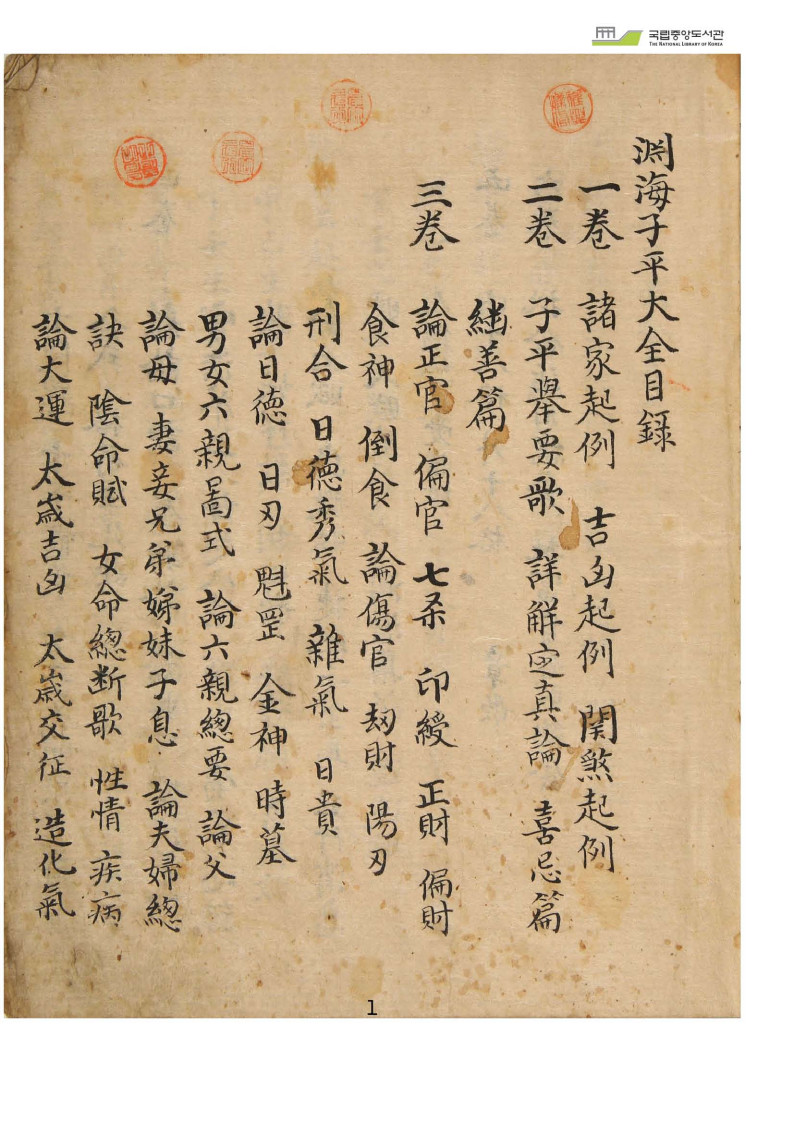 국립중앙도서관
THE NATIONAL LIBRARY OF KOREA
渊海子平大全目録
一卷 諸家起例 吉凶起例 関煞起例
二卷 子平舉要歌 詳解定真論 喜忌篇
継善篇
三卷 論正官 偏官 七杀 印綬 正財 偏財
食神 倒食 論傷官 刼財 陽刃
刑合 日德秀氣 雜氣 日貴
論日德 日刃 魁罡 金神 時墓
男女六親啚式 論六親緫要 論父
論母 妻妾兄弟娣妹子息 論夫婦緫
訣 陰命賦 女命緫断歌 性情 疾病
論大運 太歲吉凶 太歲交征 造化氣
1